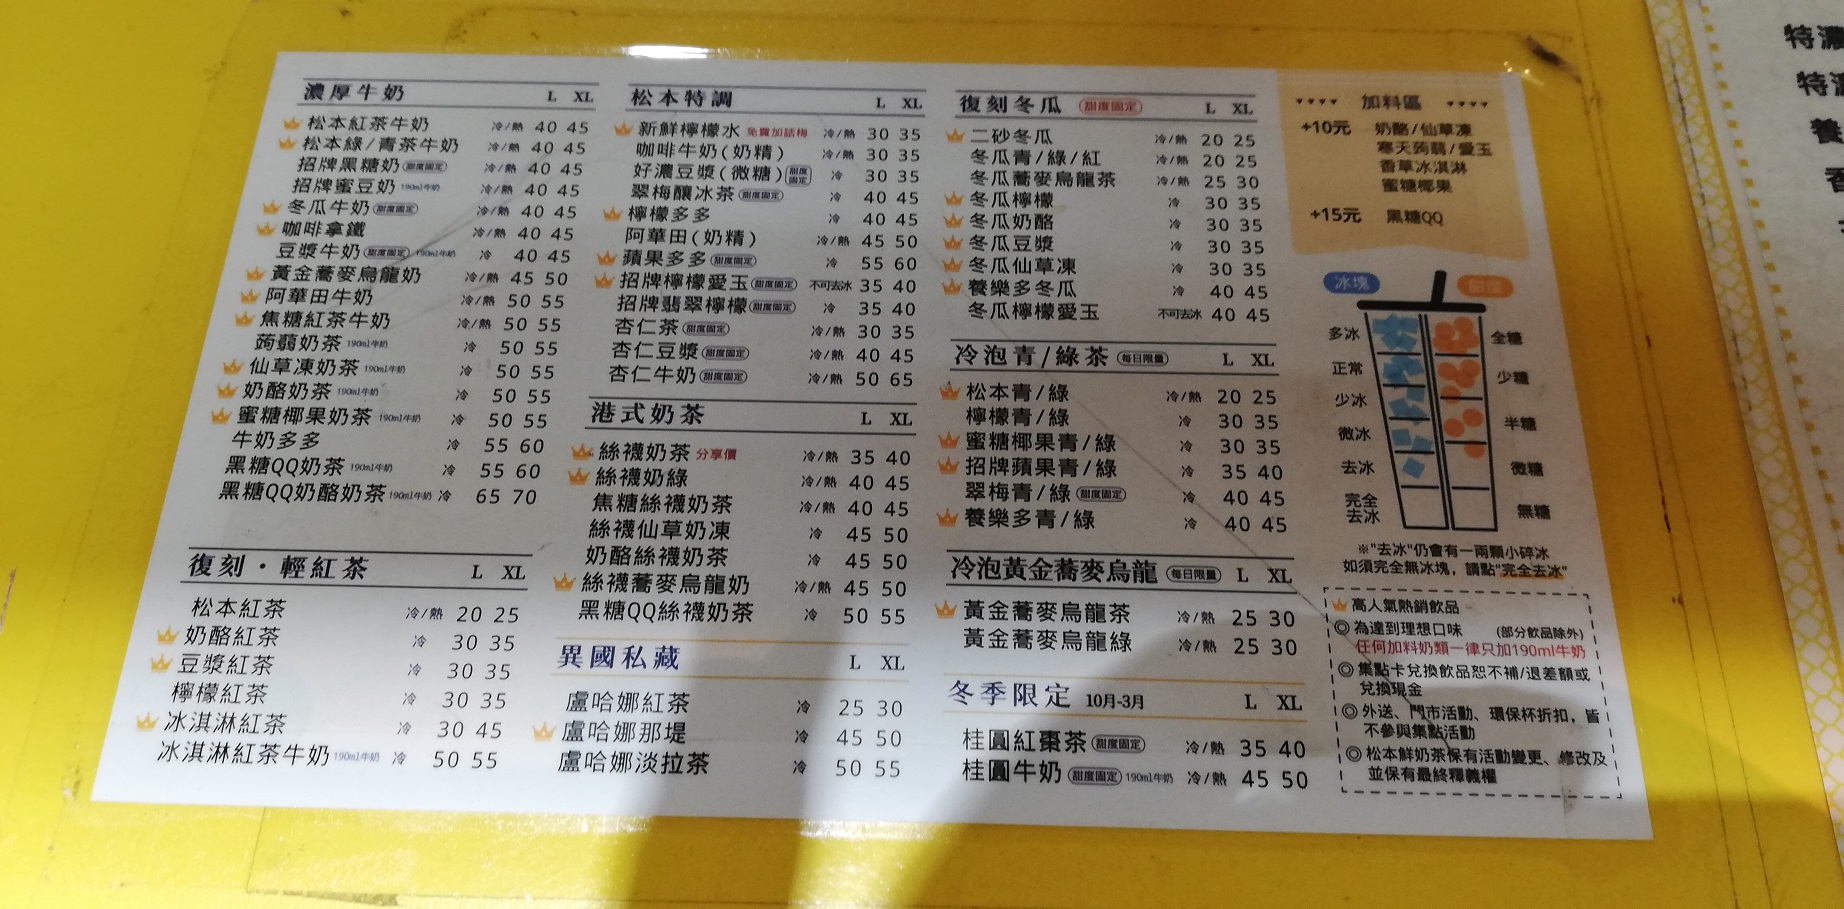 濃厚牛奶 L XL
松本紅茶牛奶 冷/熱 40 45
松本綠/青茶牛奶 冷/熱 40 45
招牌黑糖奶 甜度固定 冷/熱 40 45
招牌蜜豆奶 190ml牛奶 冷/熱 40 45
冬瓜牛奶 甜度固定 冷/熱 40 45
咖啡拿鐵 冷/熱 40 45
豆漿牛奶 甜度固定 190ml牛奶 冷 40 45
黃金蕎麥烏龍奶 冷/熱 45 50
阿華田牛奶 冷/熱 50 55
焦糖紅茶牛奶 冷/熱 50 55
蒟蒻奶茶 190ml牛奶 冷 50 55
仙草凍奶茶 190ml牛奶 冷 50 55
奶酪奶茶 190ml牛奶 冷 50 55
蜜糖椰果奶茶 190ml牛奶 冷 50 55
牛奶多多 冷 55 60
黑糖QQ奶茶 190ml牛奶 冷 55 60
黑糖QQ奶酪奶茶 190ml牛奶 冷 65 70
復刻・輕紅茶 L XL
松本紅茶 冷/熱 20 25
奶酪紅茶 冷 30 35
豆漿紅茶 冷 30 35
檸檬紅茶 冷 30 35
冰淇淋紅茶 冷 30 45
冰淇淋紅茶牛奶 190ml牛奶 冷 50 55
松本特調 L XL
新鮮檸檬水 免費加話梅 冷/熱 30 35
咖啡牛奶(奶精) 冷/熱 30 35
好濃豆漿(微糖) 甜度固定 冷 30 35
翠梅釀冰茶 甜度固定 冷 40 45
檸檬多多 冷 40 45
阿華田(奶精) 冷/熱 45 50
蘋果多多 甜度固定 冷 55 60
招牌檸檬愛玉 甜度固定 不可去冰 35 40
招牌翡翠檸檬 甜度固定 冷 35 40
杏仁茶 甜度固定 冷/熱 30 35
杏仁豆漿 甜度固定 冷/熱 40 45
杏仁牛奶 甜度固定 冷/熱 50 65
港式奶茶 L XL
絲襪奶茶 分享價 冷/熱 35 40
絲襪奶綠 冷/熱 40 45
焦糖絲襪奶茶 冷/熱 40 45
絲襪仙草奶凍 冷 45 50
奶酪絲襪奶茶 冷 45 50
絲襪蕎麥烏龍奶 冷/熱 45 50
黑糖QQ絲襪奶茶 冷 50 55
異國私藏 L XL
盧哈娜紅茶 冷 25 30
盧哈娜那堤 冷 45 50
盧哈娜淡拉茶 冷 50 55
復刻冬瓜 甜度固定 L XL
二砂冬瓜 冷/熱 20 25
冬瓜青/綠/紅 冷/熱 20 25
冬瓜蕎麥烏龍茶 冷/熱 25 30
冬瓜檸檬 冷 30 35
冬瓜奶酪 冷 30 35
冬瓜豆漿 冷 30 35
冬瓜仙草凍 冷 30 35
養樂多冬瓜 冷 40 45
冬瓜檸檬愛玉 不可去冰 40 45
冷泡青/綠茶 每日限量 L XL
松本青/綠 冷/熱 20 25
檸檬青/綠 冷 30 35
蜜糖椰果青/綠 冷 30 35
招牌蘋果青/綠 冷 35 40
翠梅青/綠 甜度固定 冷 40 45
養樂多青/綠 冷 40 45
冷泡黃金蕎麥烏龍 每日限量 L XL
黃金蕎麥烏龍茶 冷/熱 25 30
黃金蕎麥烏龍綠 冷/熱 25 30
冬季限定 10月-3月 L XL
桂圓紅棗茶 甜度固定 冷/熱 35 40
桂圓牛奶 甜度固定 190ml牛奶 冷/熱 45 50
加料區
+10元 奶酪/仙草凍
寒天蒟蒻/愛玉
香草冰淇淋
蜜糖椰果
+15元 黑糖QQ
冰塊 甜度
多冰 全糖
正常 少糖
少冰 半糖
微冰
去冰 微糖
完全去冰 無糖
※"去冰"仍會有一兩顆小碎冰
如須完全無冰塊，請點"完全去冰"
高人氣熱銷飲品
◎為達到理想口味 (部分飲品除外)
任何加料奶類一律只加190ml牛奶
◎集點卡兌換飲品恕不補/退差額或
兌換現金
◎外送、門市活動、環保杯折扣，皆
不參與集點活動
◎松本鮮奶茶保有活動變更、修改及
並保有最終釋義權
特濃
特濃
養
香